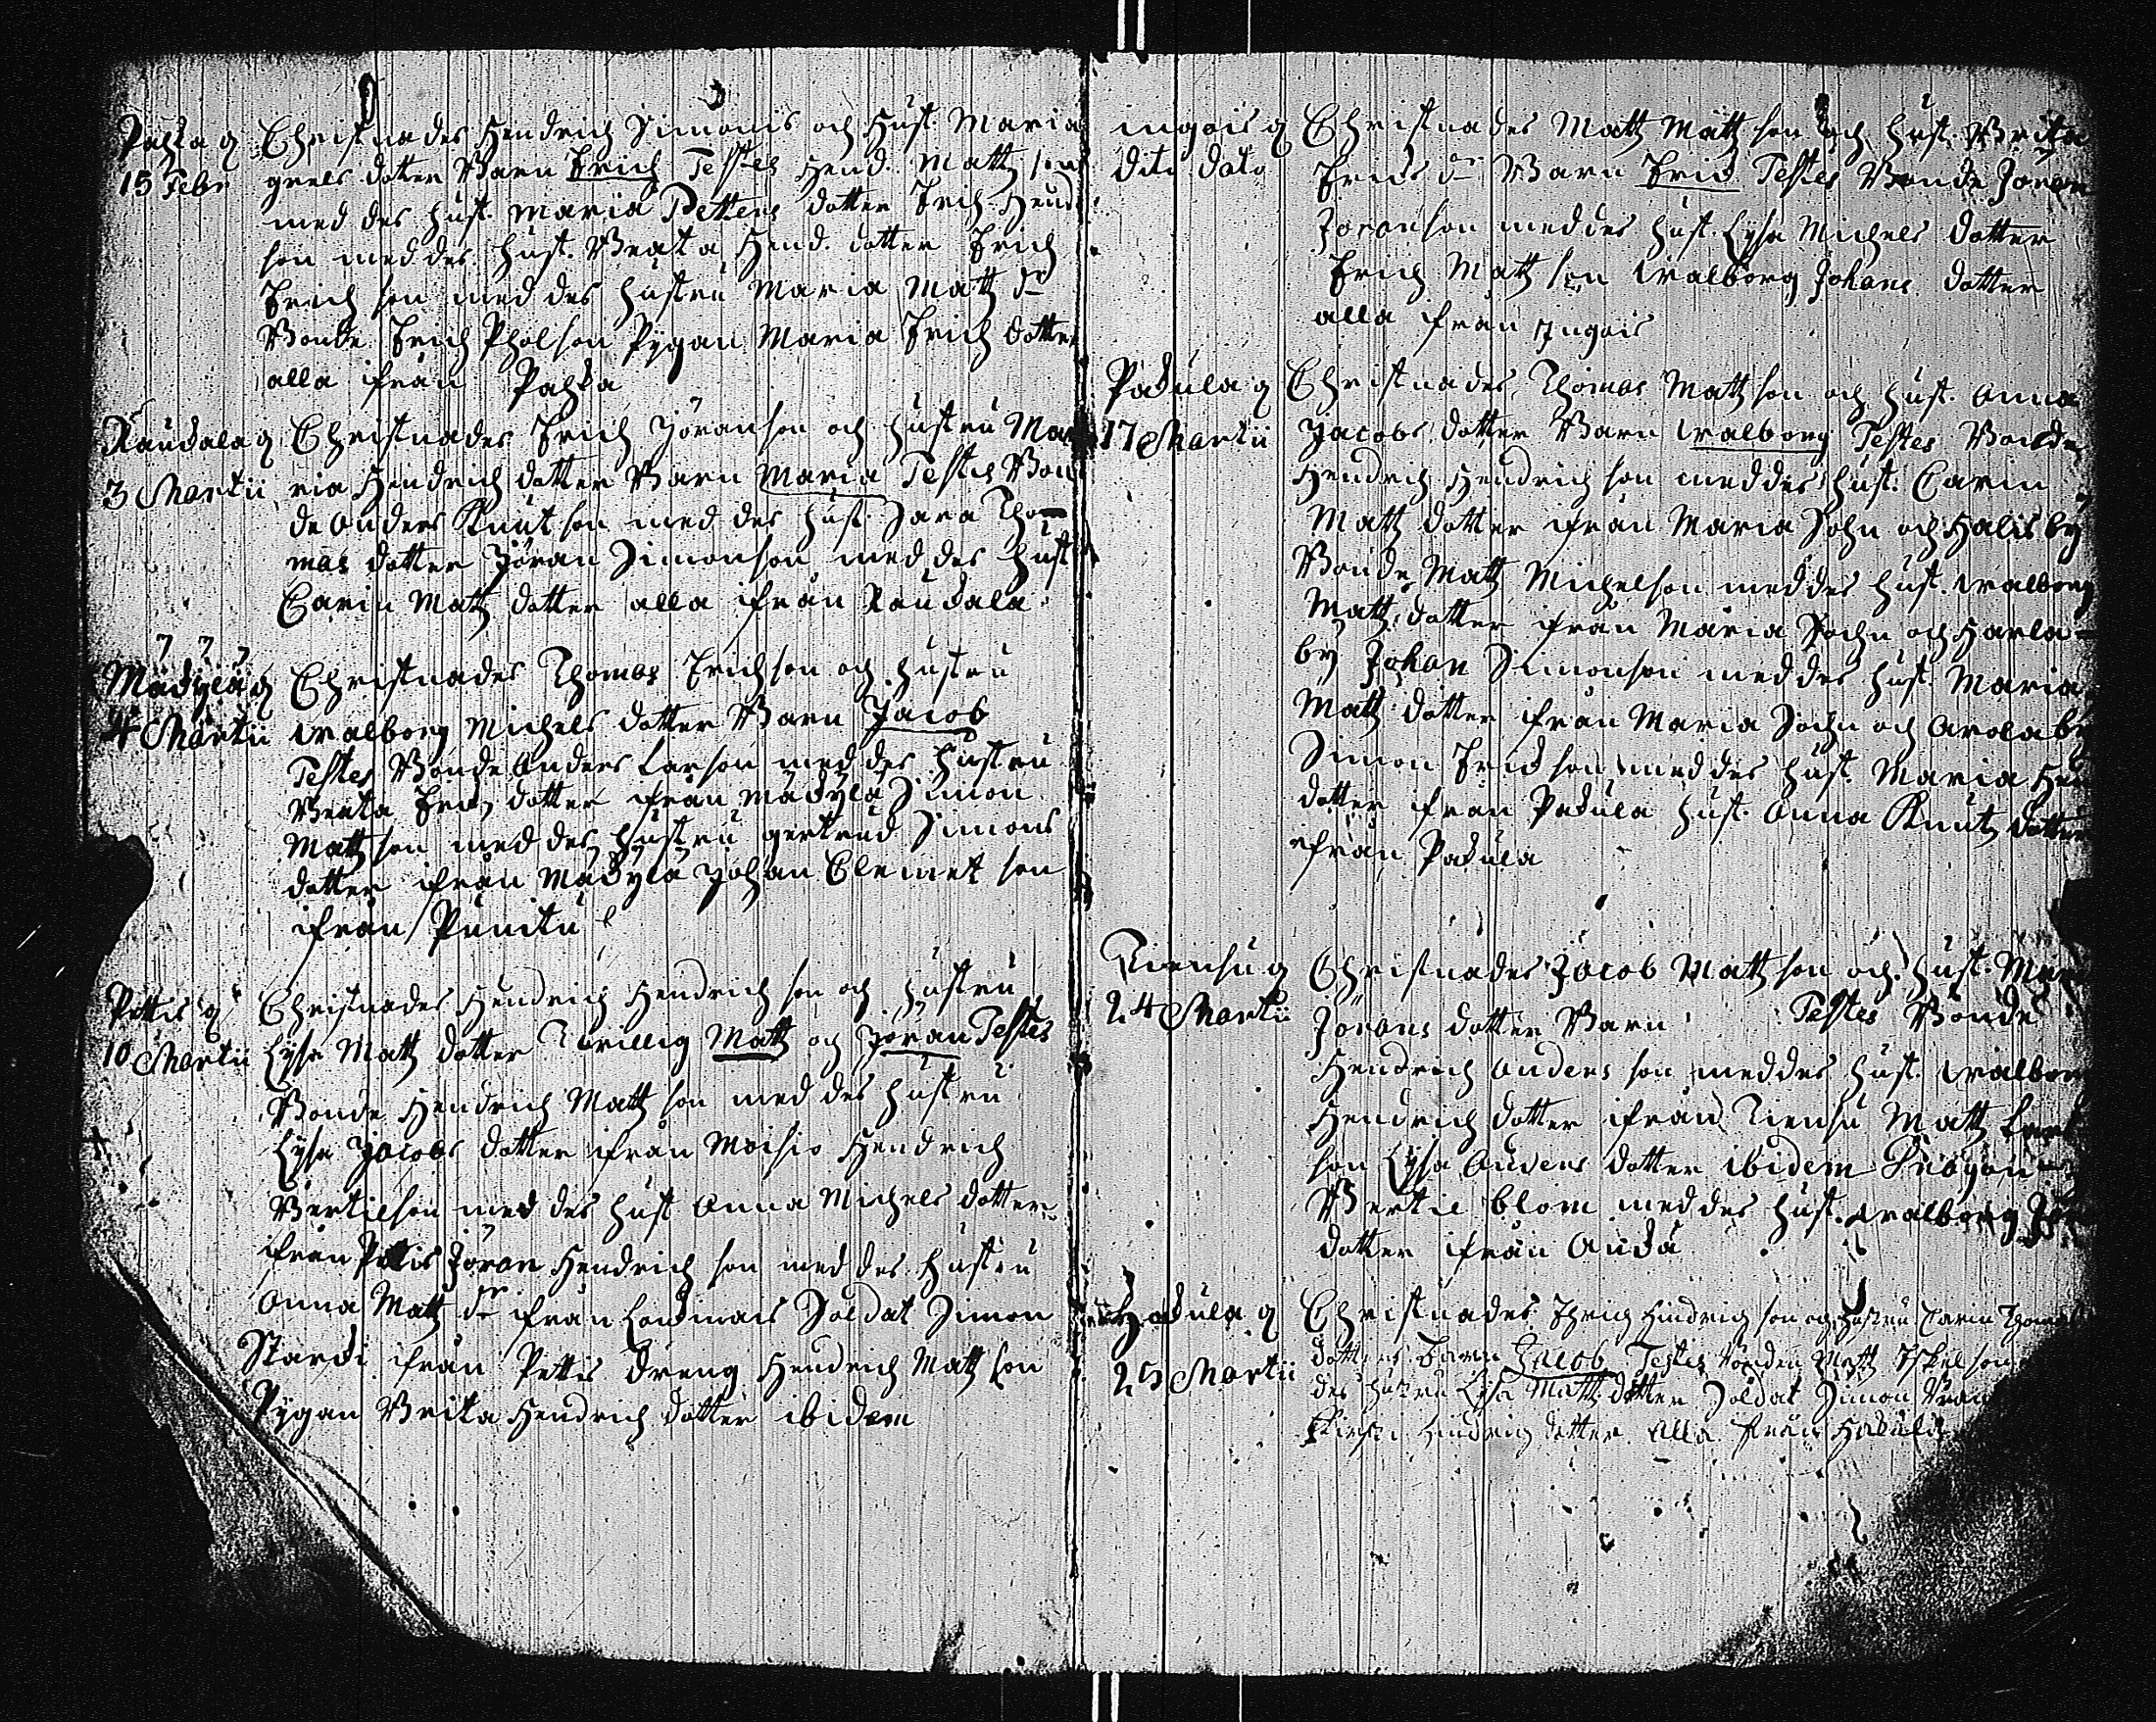 Pahka q Christnades Hendrich Simons och Hust. Maria
15 Febr greels dotter Barn Erich Testes Hend. Matts son
med des hust. Maria Petters dotter Erich Hend
son med des hust. Beata Hend. dotter Erich
Erich son med des hustru Maria Matts dr
Bonde Erich Pholson Pygan Maria Erich dotter
alla ifrån Pahka
Raukala q Christnades Erich Jöranson och hustru Ma
3 Martii ria Hendrich dotter Barn Maria Testes Bon
de Anders Knutson med des hust. Sara Tho
mas dotter Jöran Simonson med des hust
Carin Matts dotter alla ifrån Raukala
Mäkylä q Christnades Thomas Erichson och hustru
4 Martii Walborg Michels dotter Barn Jacob
Testes Bonde Anders Larson med des hustru
Beata Erich dotter ifrån Mäkylä Simon
Matts son med des hustru gertrud Simons
dotter ifrån Mäkylä Johan Clemet son
ifrån Punitu
Pettis q Christnades Hendrich Hendrich son och hustru
10 Martii Lysa Matts dotter Tvillig Matts och Jöran Testes
Bonde Hendrich Matts son med des hustru
Lysa Jacobs dotter ifrån Moisio Hendrich
Bertilson med des hust Anna Michels dotter
ifrån Pettis Jöran Hendrich son med des hustru
Anna Matts dr ifrån Soldat Simon
Starcki ifrån Pettis dreng Hendrich Matts son
Pygan Brita Hendrich dotter ibidem
ingois q Christnades Matts Matts son och hust. Brita
dito dato Erics dr Barn Eric Testes Bonde Joran
Joranson med des hust. Lysa Michels dotter
Erich Matts son Walborg Johans dotter
alla ifrån Ingois
Pakula q Christnades Thomas Matts son och hust. Anna
17 Martii Jacobs dotter Barn Walborg Testes Bonde
Hendrich Hendrich son med des hust. Carin
Matts dotter ifrån Maria Sohn och Halis by
Bonde Matts Michelson med des hust. Walborg
Matts dotter ifrån Maria Sochn och Harla-
by Johan Simonson med des hust. Maria
Matts dotter ifrån Maria Sochn och Arola by
Simon Ericson med des hust. Maria Hen
dotter ifrån Pakula hust. Anna Knuts dotter
ifrån Pakula
Tiensu q Christnades Jacob Matts son och hust. Mar
24 Martii Jörans dotter Barn Testes Bonde
Hendrich Anders son med des hust. Walborg
Hendrich dotter ifrån Tiensu Matts
son Lysa Anders dotter ibidem
Bertil blom med des hust. Walborg
dotter ifrån Auka
Hakula q Christnades Hindrich son och hustru Carin Thomas
25 Martii dotters Barn Jacob Testes bonden Matts son
des hustru Lysa Matts dotter Soldat Simon
Hindrich dotter Alla ifrån Hakula